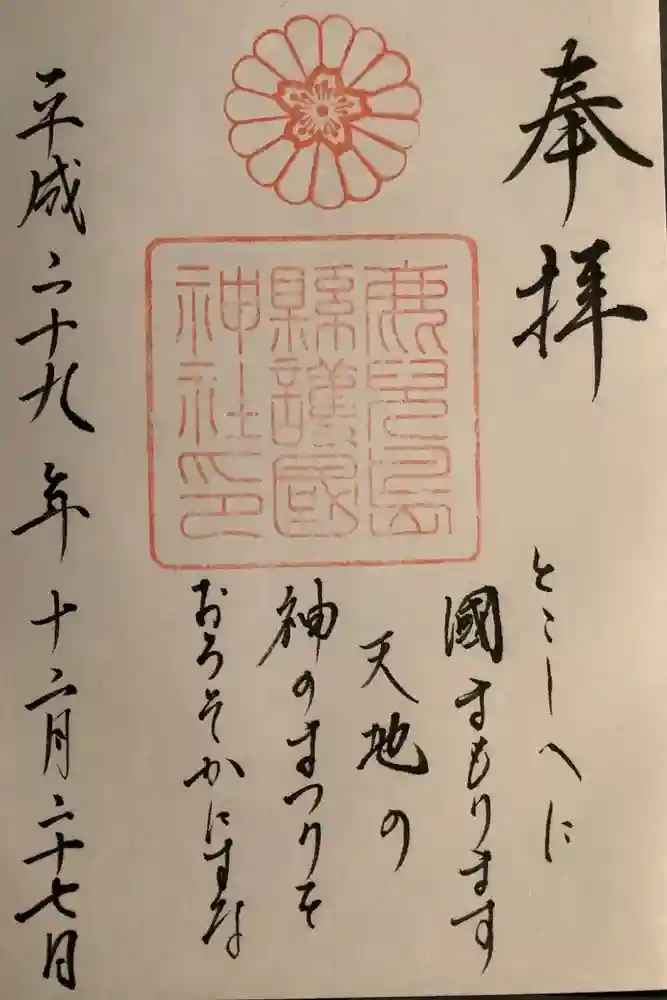 奉拝
鹿兒島
縣護國
神社印
とこしへに
國まもります
天地の
神のまつりそ
おろそかにすな
平成二十九年十二月二十七日